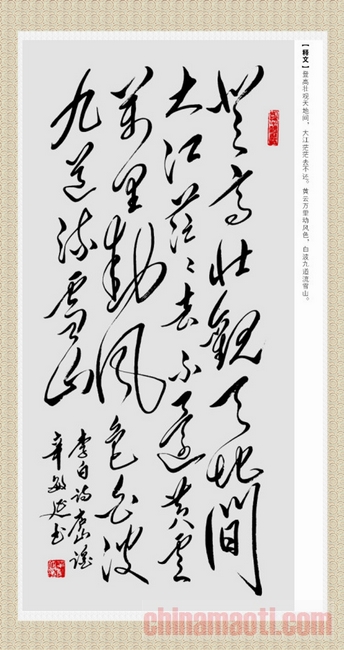 【释文】登高壮观天地间，大江茫茫去不还。黄云万里动风色，白波九道流雪山。
登高壮観天地間
大江茫々去不還黄雲
萬里動風色白波
九道流雪山
李白诗庐山谣
辛敏 书
chinamaoti.com